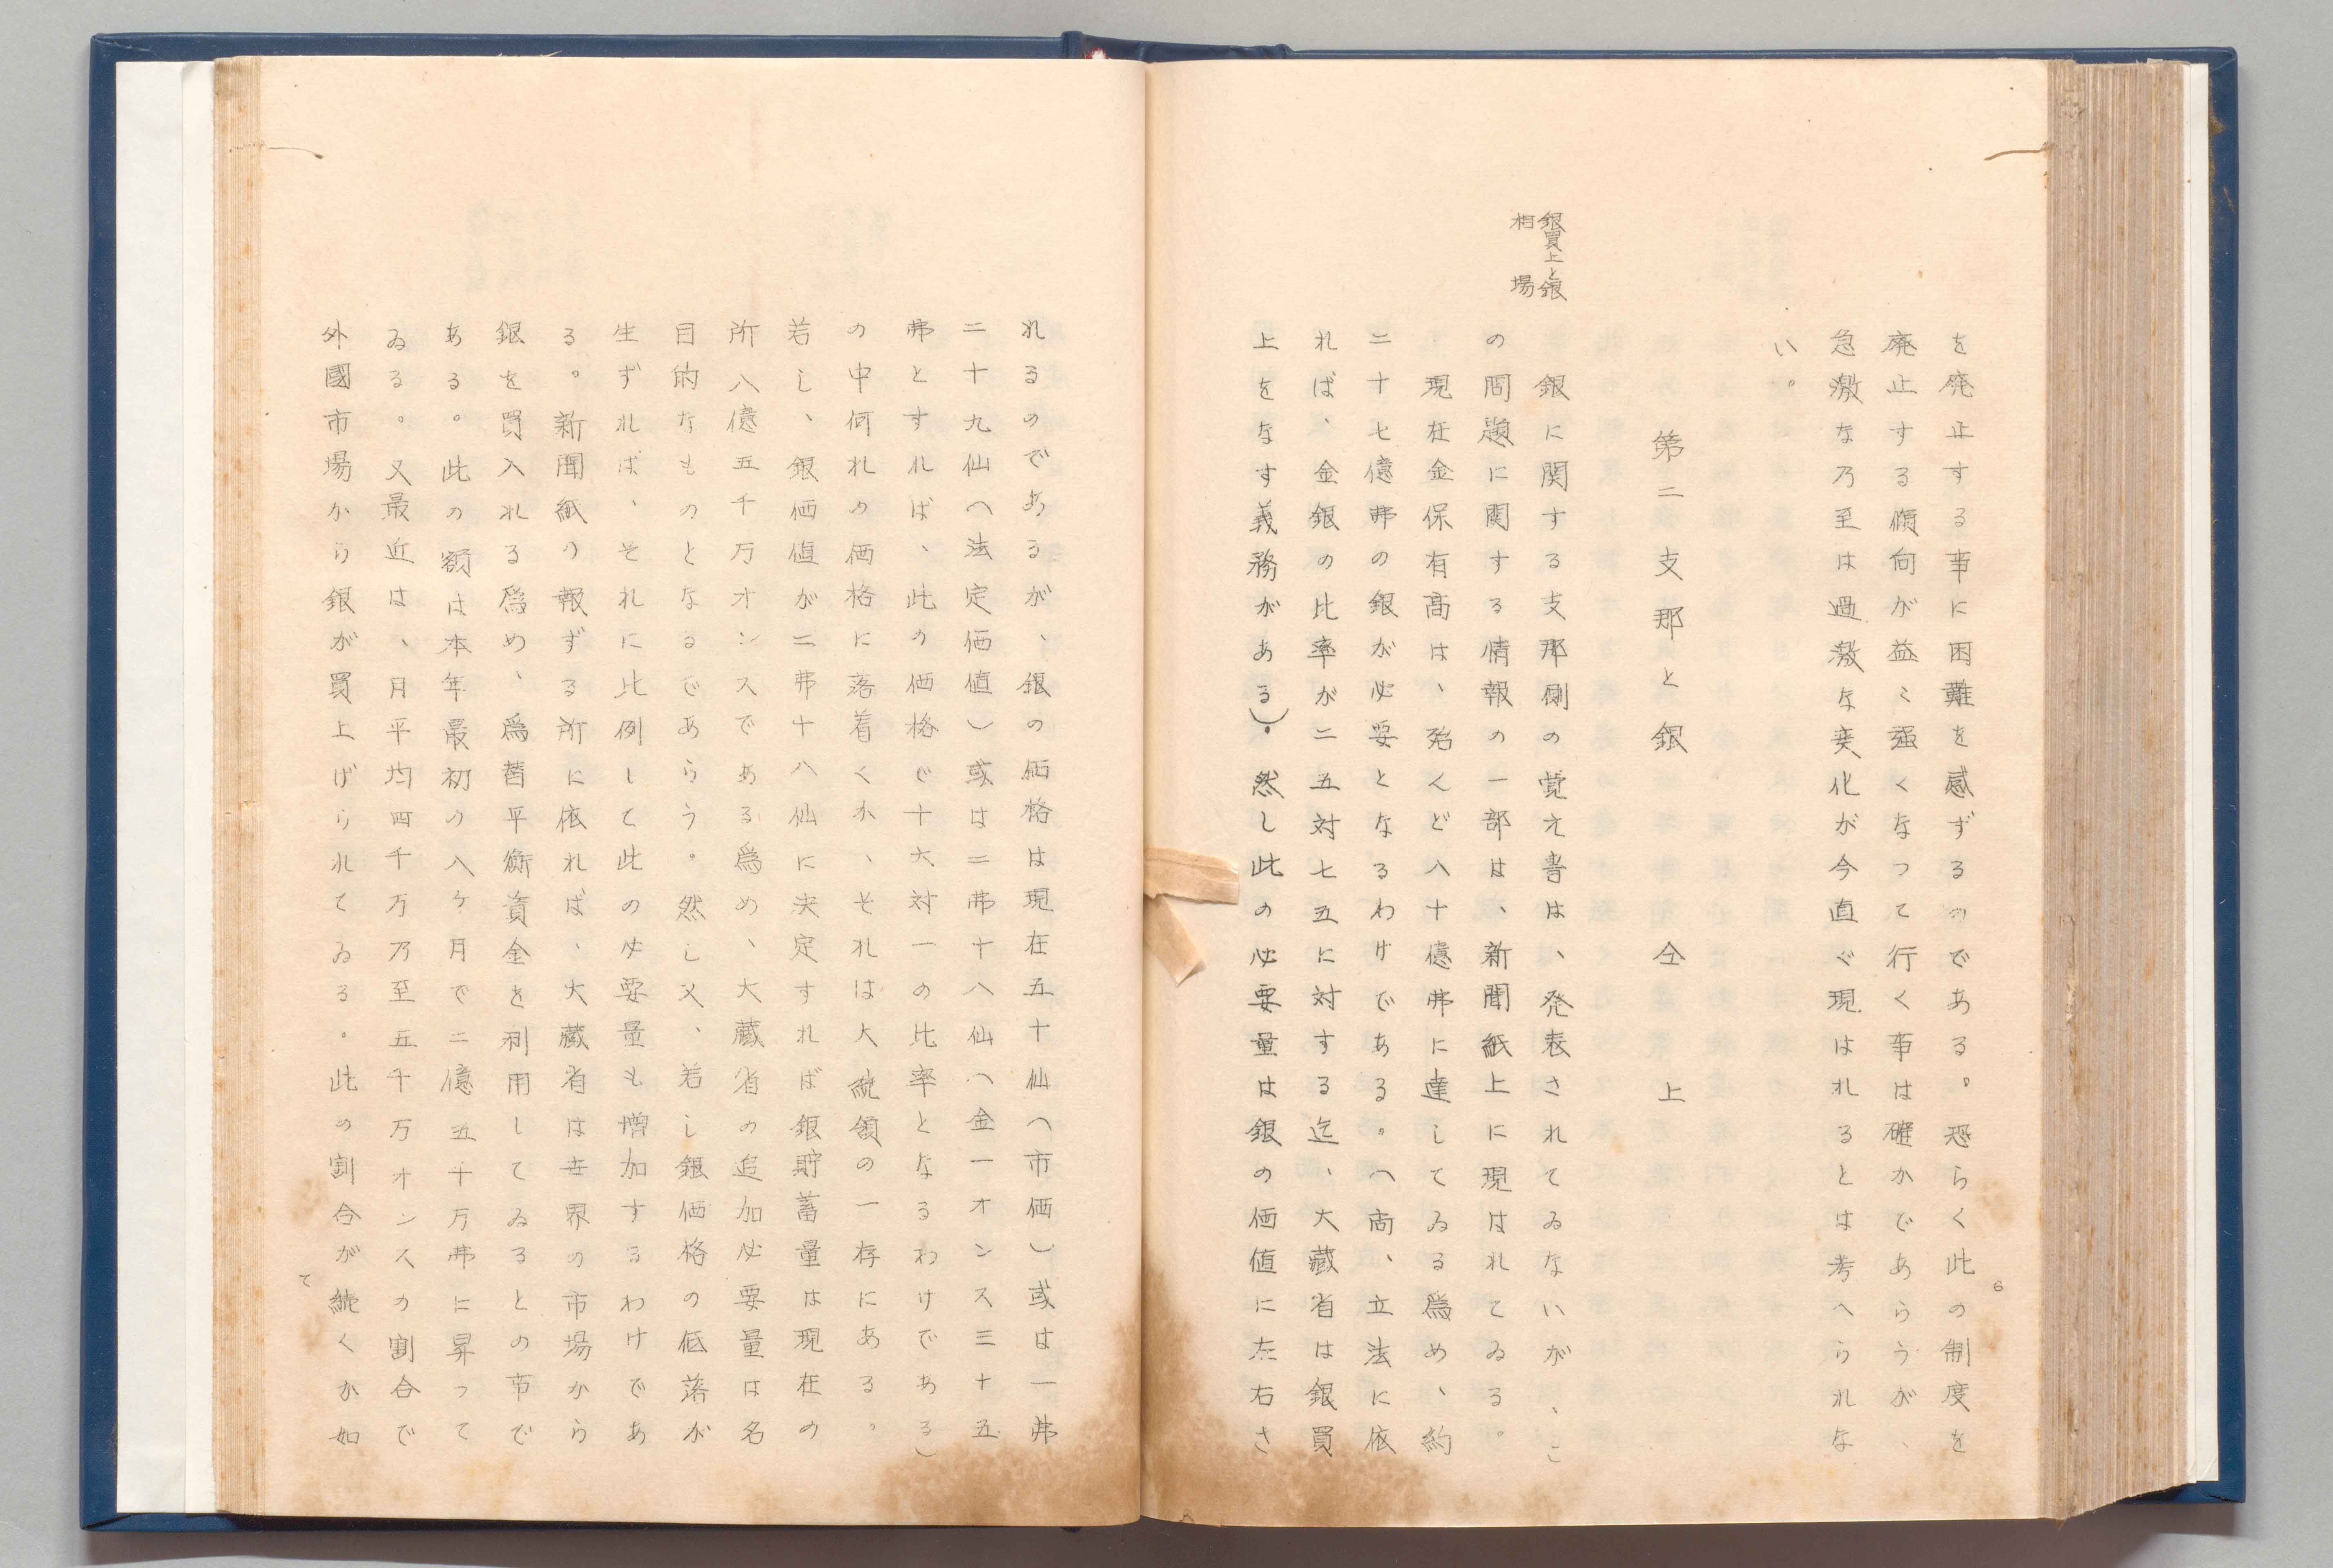 を廃止する事に困難を感ずるのである。恐らく此の制度を
廃止する傾向が益〻强くなつて行く事は確かであらうが、
急激な乃至は過激な変化が今直ぐ現はれるとは考へられな
い。
第二 支那と銀 仝上
銀買上と銀
相場
銀に関する支那側の覚え書は、発表されてゐないが、こ
の問題に関する情報の一部は、新聞紙上に現はれてゐる。
現在金保有高は、殆んど八十億弗に達してゐる爲め、約
二十七億弗の銀が必要となるわけである。(尚、立法に依
れば、金銀の比率が二五対七五に対する迄、大藏省は銀買
上をなす義務がある)。然し此の必要量は銀の価値に左右さ
6
れるのであるが、銀の価格は現在五十仙(市価)或は一弗
二十九仙(法定価値)或は二弗十八仙(金一オンス三十五
弗とすれば、此の価格で十六対一の比率となるわけである)
の中何れの価格に落着くか、それは大統領の一存にある。
若し、銀価値が二弗十八仙に決定すれば銀貯蓄量は現在の
所八億五千万オンスである爲め、大藏省の追加必要量は名
目的なものとなるであらう。然し又、若し銀価格の低落が
生ずれば、それに比例して此の必要量も増加するわけであ
る。新聞紙の報ずる所に依れば、大藏省は世界の市場から
銀を買入れる爲め、爲替平衡資金を利用してゐるとの事で
ある。此の額は本年最初の八ケ月で二億五千万弗に昇つて
ゐる。又最近は、月平均四千万乃至五千万オンスの割合で
外國市場から銀が買上げられてゐる。此の割合が続くか如
て